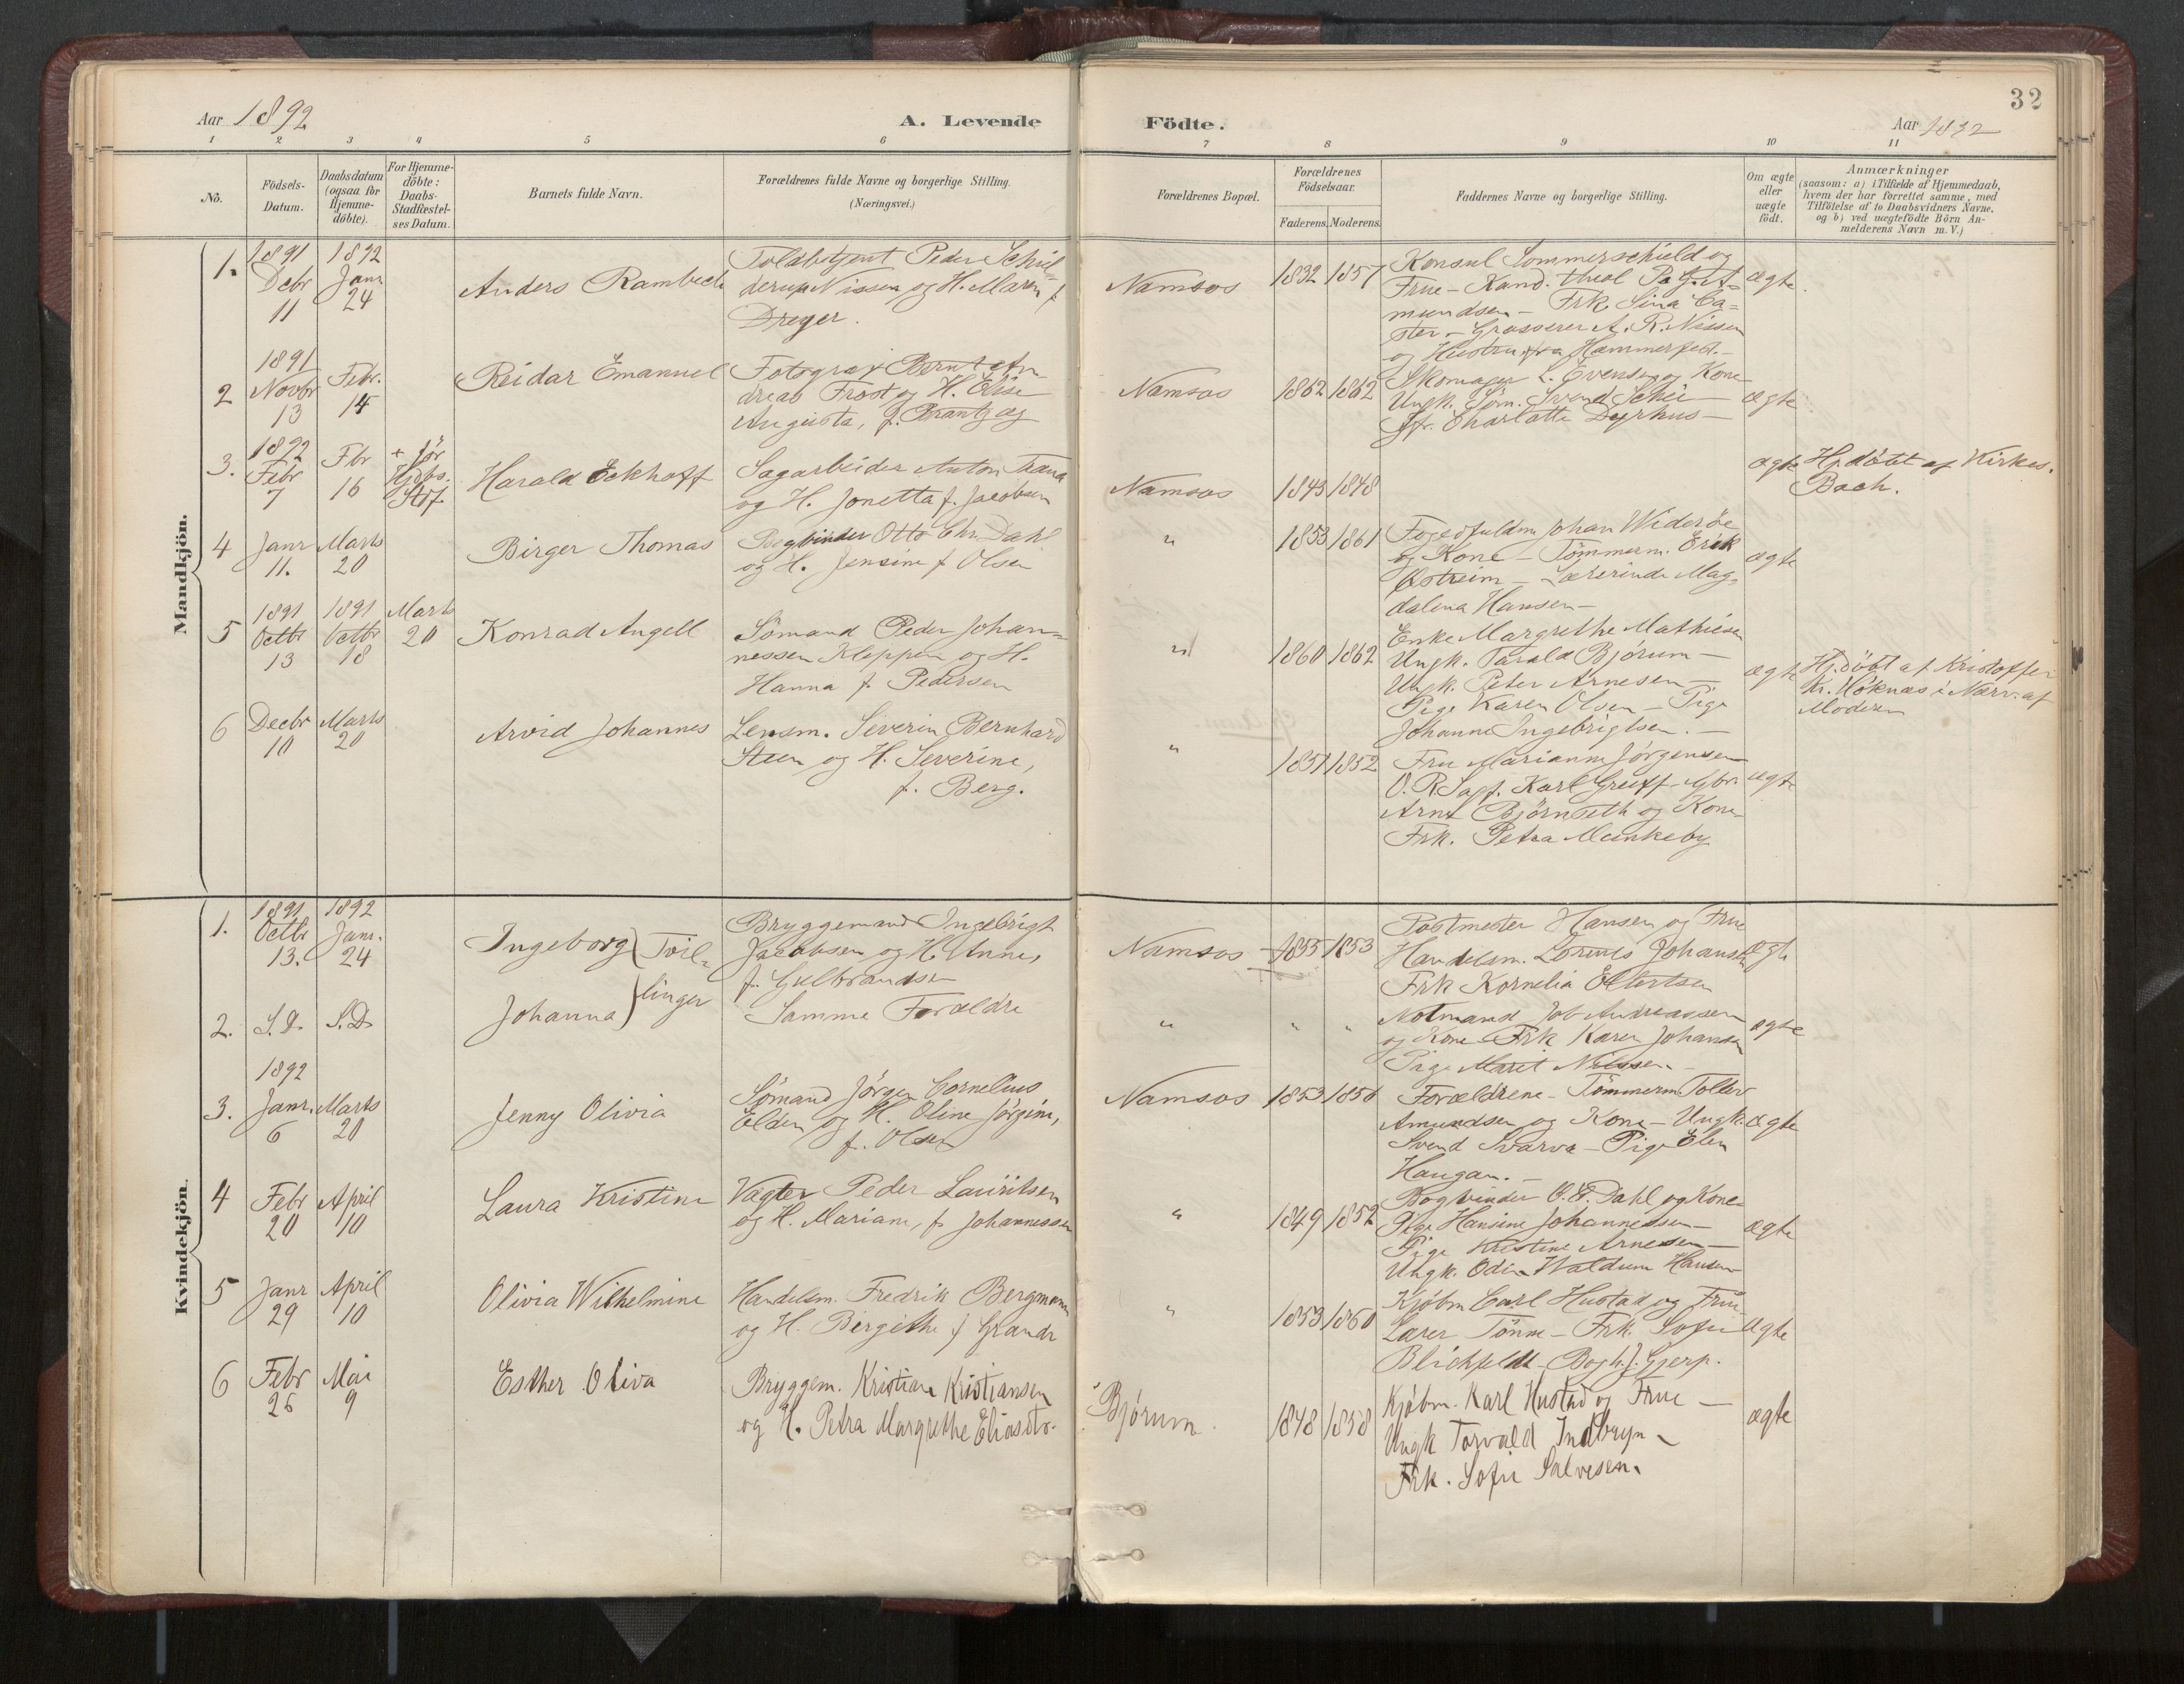 Aar 1892
A. Levende
Födte.
Aar 1892
32
1 2 3 4 5 6 7 8 9 10 11
No.
Födsels-
Datum.
Daabsdatum
(ogsaa for
Hjemme-
döbte).
For Hjemme-
döbte:
Daabs-
Stadfæstel-
ses Datum.
Barnets fulde Navn.
Forældrenes fulde Navne og borgerlige Stilling.
(Næringsvei.)
Forældrenes Bopæl.
Forældrenes
Födselsaar.
Faderens. Moderens.
Faddernes Navne og borgerlige Stilling.
Om ægte
eller
uægte
födt.
Anmærkninger
(saasom: a) i Tilfælde af Hjemmedaab,
hvem der har forrettet samme, med
Tilföielse af to Daabsvidners Navne,
og b) ved uægtefödte Börn An-
melderens Navn m. V.)
Mandkjön.
1.
1891
Decbr
11
1892
Janr
24
Anders Rambech
Toldbetjent Peder Schjel-
derup Nissen og H. Maren f.
Dreyer.
Namsos
1832 1857
Konsul Sommerschield og
Frue - Kand. theol P. G. A-
mundsen - Frk Sina Ca-
ster - Grosserer A. R. Nissen
og Hustru fra Hammerfest.-
ægte.
2
1891
Novbr
13
Febr.
14
Reidar Emanuel
Fotograf Bernt An-
dreas Frost og H. Elise
Augusta, f. Brantzæg
Namsos
1862 1862
Skomager L. Evensen og Kone
Ungk. Søm. Svend Schei -
Jfr. Charlotte Dyrhus -
ægte
3.
1892
Febr
7
Fbr
16
+ før
Hjdbs.
Stf.
Harald Eckhoff
Sagarbeider Anton Trana
og H. Jonetta f. Jacobsen
Namsos
1843 1848
ægte
Hj.døbt af Kirkes.
Bach.
4
Janr
11.
Marts
20
Birger Thomas
Bogbinder Otto Chr. Dahl
og H. Jensine f Olsen
"
1853 1861
Fogedfuldm Johan Widerøe
og Kone - Tömmerm. Erik
Østreim - Lærerinde Mag-
dalena Hansen -
ægte
5
1891
Octbr
13
1891
Octbr
18
Marts
20
Konrad Angell
Sömand Peder Johan-
nessen Kleppen og H.
Hanna f. Pedersen
"
1860 1862
Enke Margrethe Mathiesen
Ungk. Tarald Bjørum -
Ungk. Peter Arnesen -
Pige Karen Olsen - Pige
Johanne Ingebrigtsen. -
ægte
Hj.døbt af Kristoffer
Kr. Høknæs i Nærv. af
Moderen
6
Decbr
10
Marts
20
Arvid Johannes
Lensm. Severin Bernhard
Steen og H. Severine,
f. Berg.
"
1851 1852
Fru Marianne Jörgensen
O. R. Sagf. Karl Greiff - Gbr.
Arnt Bjørnseth og Kone
Frk. Petra Munkeby
ægte
Kvindekjön.
1.
1891
Octbr
13.
1892
Janr.
24
Ingeborg
Tvil-
linger
Bryggemand Ingebrigt
Jacobsen og H. Anne,
f. Gulbrandsen
Namsos
1855 1853
Postmester Hansen og Frue
Handelsm. Lorents Johansen
Frk Kornelia Ellertsen
ægte
2.
S.D.
S.D.
Johanna
Samme Forældre
" " "
Notmand Job Andreassen
og Kone - Frk Karen Johansen
Pige Marit Nilssen. -
ægte
3.
1892
Janr.
6
Marts
20
Jenny Olivia
Sömand Jörgen Cornelius
Elden og H. Oline Jörgine,
f. Olsen
Namsos
1853 1856
Forældrene - Tömmerm Tollev
Amundsen og Kone - Ungk.
Svend Svarva - Pige Elen
Haugan. -
ægte
4
Febr
20
April
10
Laura Kristine
Vagter Peder Lauritsen
og H. Mariane, f. Johannessen
"
1849 1852
Bogbinder O. C. Dahl og Kone
Pige Hansine Johannessen -
Pige Kristine Arnesen -
Ungk. Odin Waldum Hansen
ægte
5
Janr
29
April
10
Olivia Wilhelmine
Handelsm. Fredrik Bergmann
og H. Bergithe f Grande
"
1853 1860
Kjøbm Carl Hustad og Frue
Lærer Tönne - Frk. Sofie
Blichfeldt - Bogh. J. Gjerp.
ægte
6
Febr
26
Mai
9
Esther Oliva
Bryggem. Kristian Kristiansen
og H. Petra Margrethe Eliasdtr.
Bjørum.
1848 1858
Kjøbm. Karl Hustad og Frue -
Ungk Torvald Indbryn -
Frk. Sofie Salvesen.
ægte